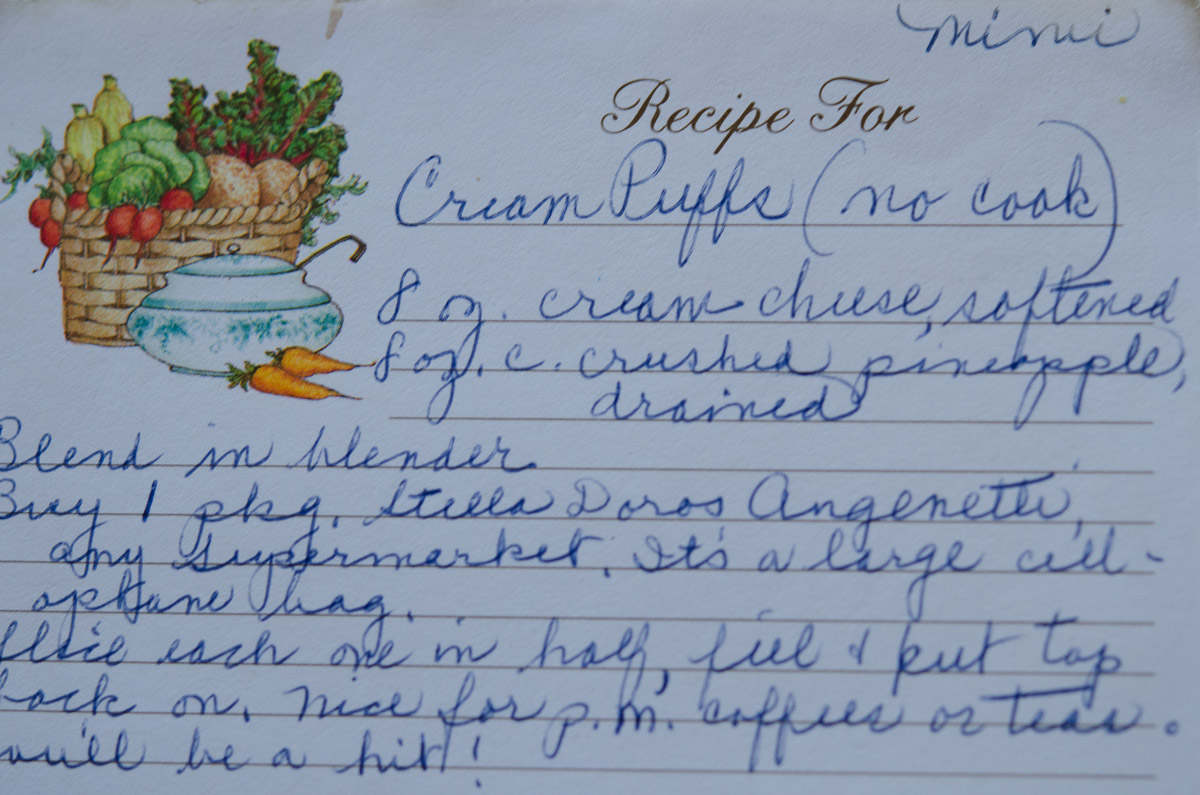 Mimi
Recipe For
Cream Puffs (no cook)
8 oz. cream cheese, softened
8 oz. c. crushed pineapple,
drained
Blend in blender.
Buy 1 pkg. Stella Doros Angenetti,
any supermarket. It's a large cell-
ophane bag.
Slice each one in half, fill & put top
back on. Nice for p.m. coffees or teas.
You'll be a hit!